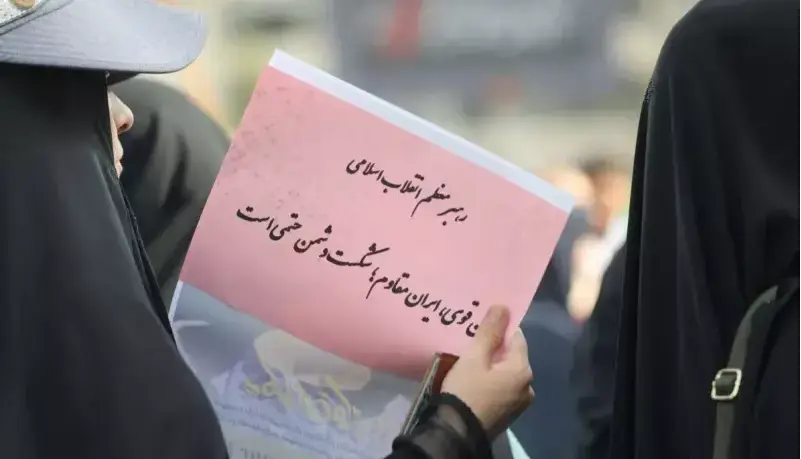 رهبر معظم انقلاب اسلامی
قوی، ایران مقاوم؛ شکست دشمن حتمی است